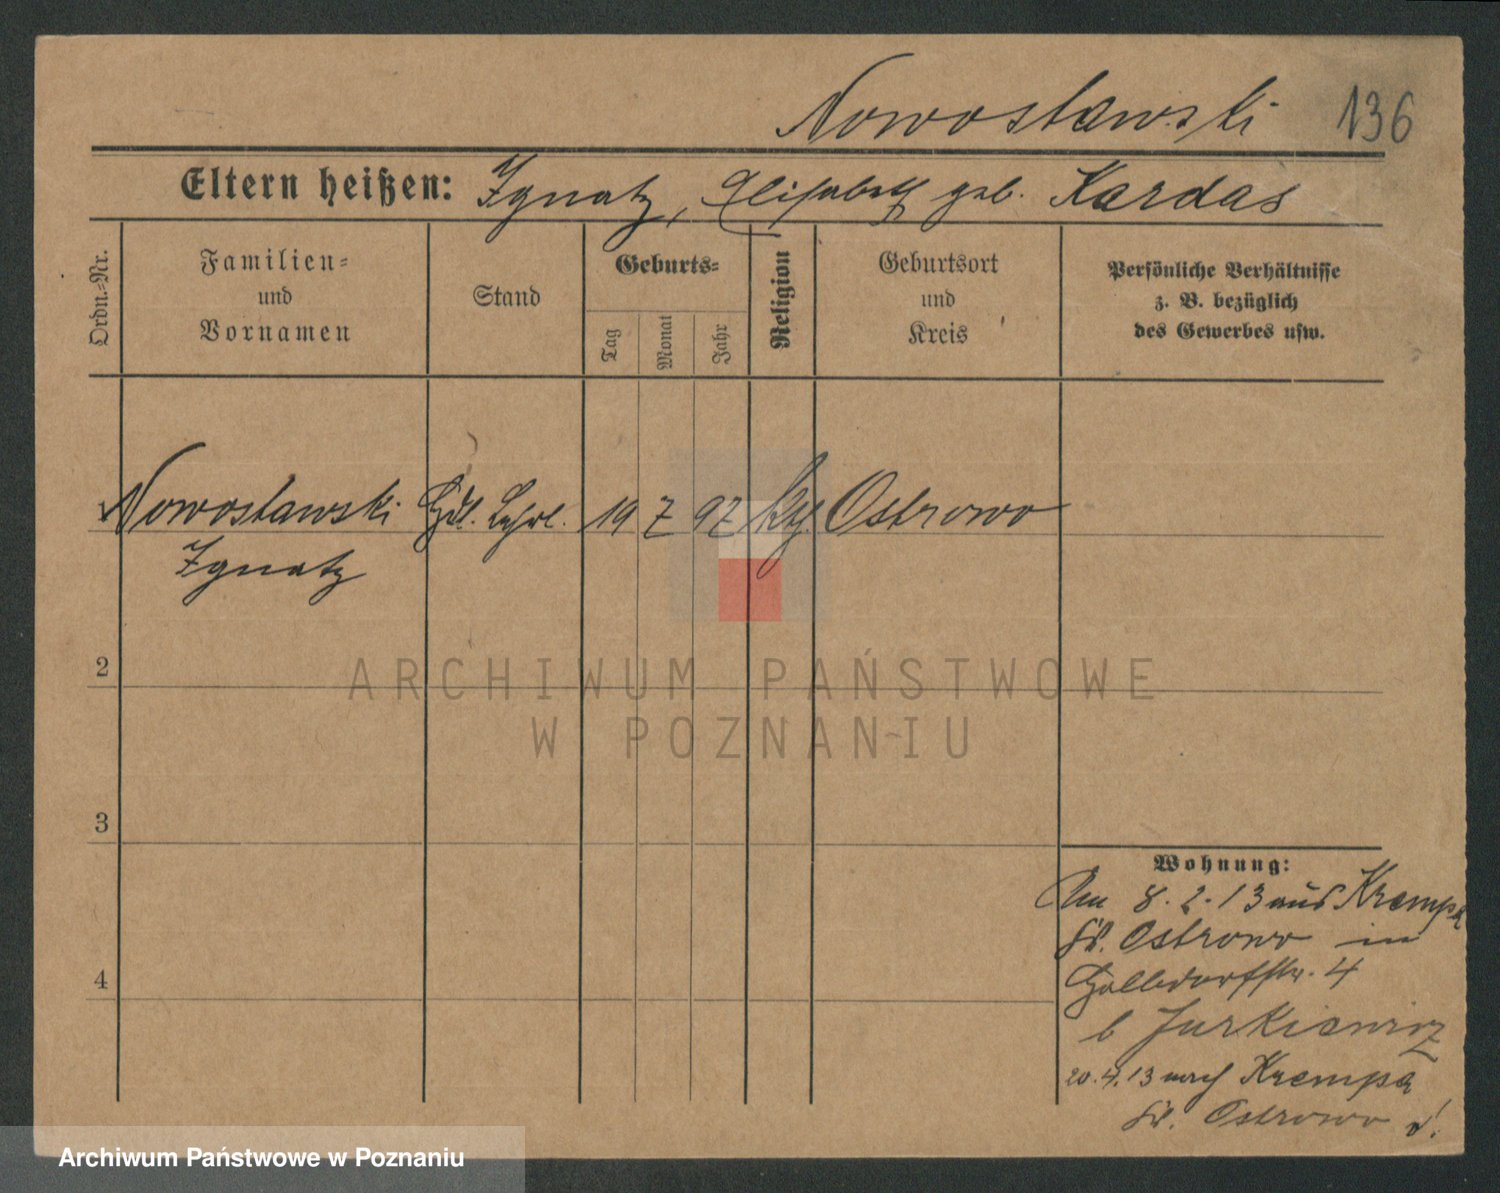 Nowosławski 136
Eltern heißen: Ignatz, Elisabeth geb. Kardas
Ordn.-Nr.
Familien-
und
Vornamen
Stand
Geburts-
Tag
Monat
Jahr
Religion
Geburtsort
und
Kreis
Persönliche Verhältnisse
z. B. bezüglich
des Gewerbes usw.
Nowosławski Hdl. Lehrl. 19 7 97 kg Ostrowo
Ignatz
2
3
4
Wohnung:
Am 8.2.13 aus Krempa
Kr. Ostrowo in
4
b Jurkiewicz
20.4.13 nach Krempa
Kr. Ostrowo
ARCHIWUM PAŃSTWOWE
W POZNANIU
Archiwum Państwowe w Poznaniu